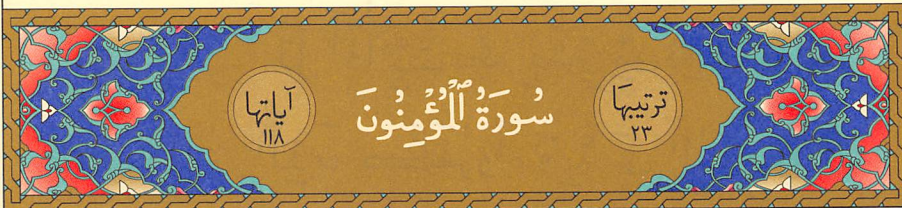 ترتيبها
٢٣
سُورَةُ ٱلْمُؤْمِنُونَ
آياتها
١١٨